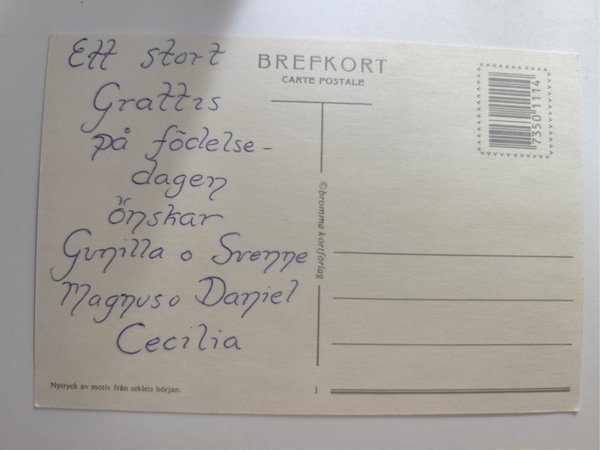 Ett stort
Grattis
på födelse-
dagen
önskar
Gunilla o Svenne
Magnus o Daniel
Cecilia
BREFKORT
CARTE POSTALE
7350 1114
©bromma kortförlag
Nytryck av motiv från seklets början.
1